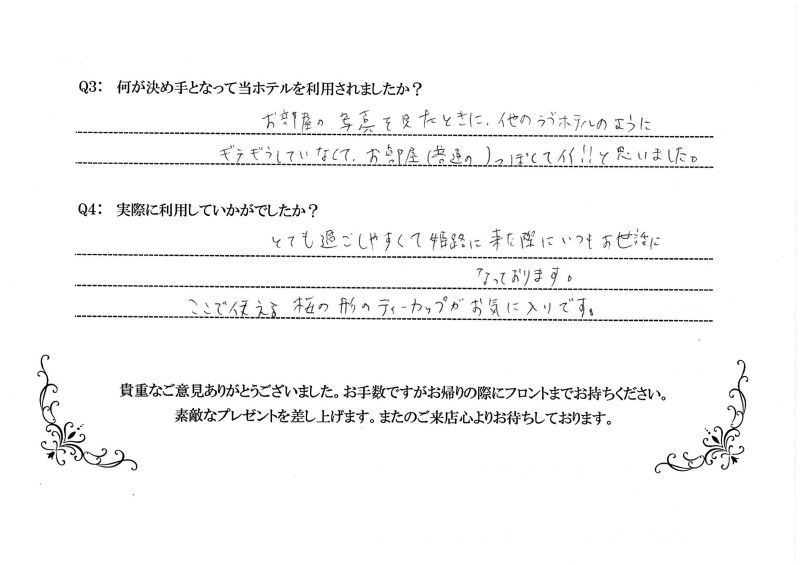 Q3： 何が決め手となって当ホテルを利用されましたか？
お部屋の写真を見たときに、他のラブホテルのように
ギラギラしていなくて、お部屋（普通の）っぽくてイイ!!と思いました。
Q4： 実際に利用していかがでしたか？
とても過ごしやすくて姫路に来た際にいつもお世話に
なっております。
ここで使える 桜の形のティーカップがお気に入りです。
貴重なご意見ありがとうございました。お手数ですがお帰りの際にフロントまでお持ちください。
素敵なプレゼントを差し上げます。またのご来店心よりお待ちしております。